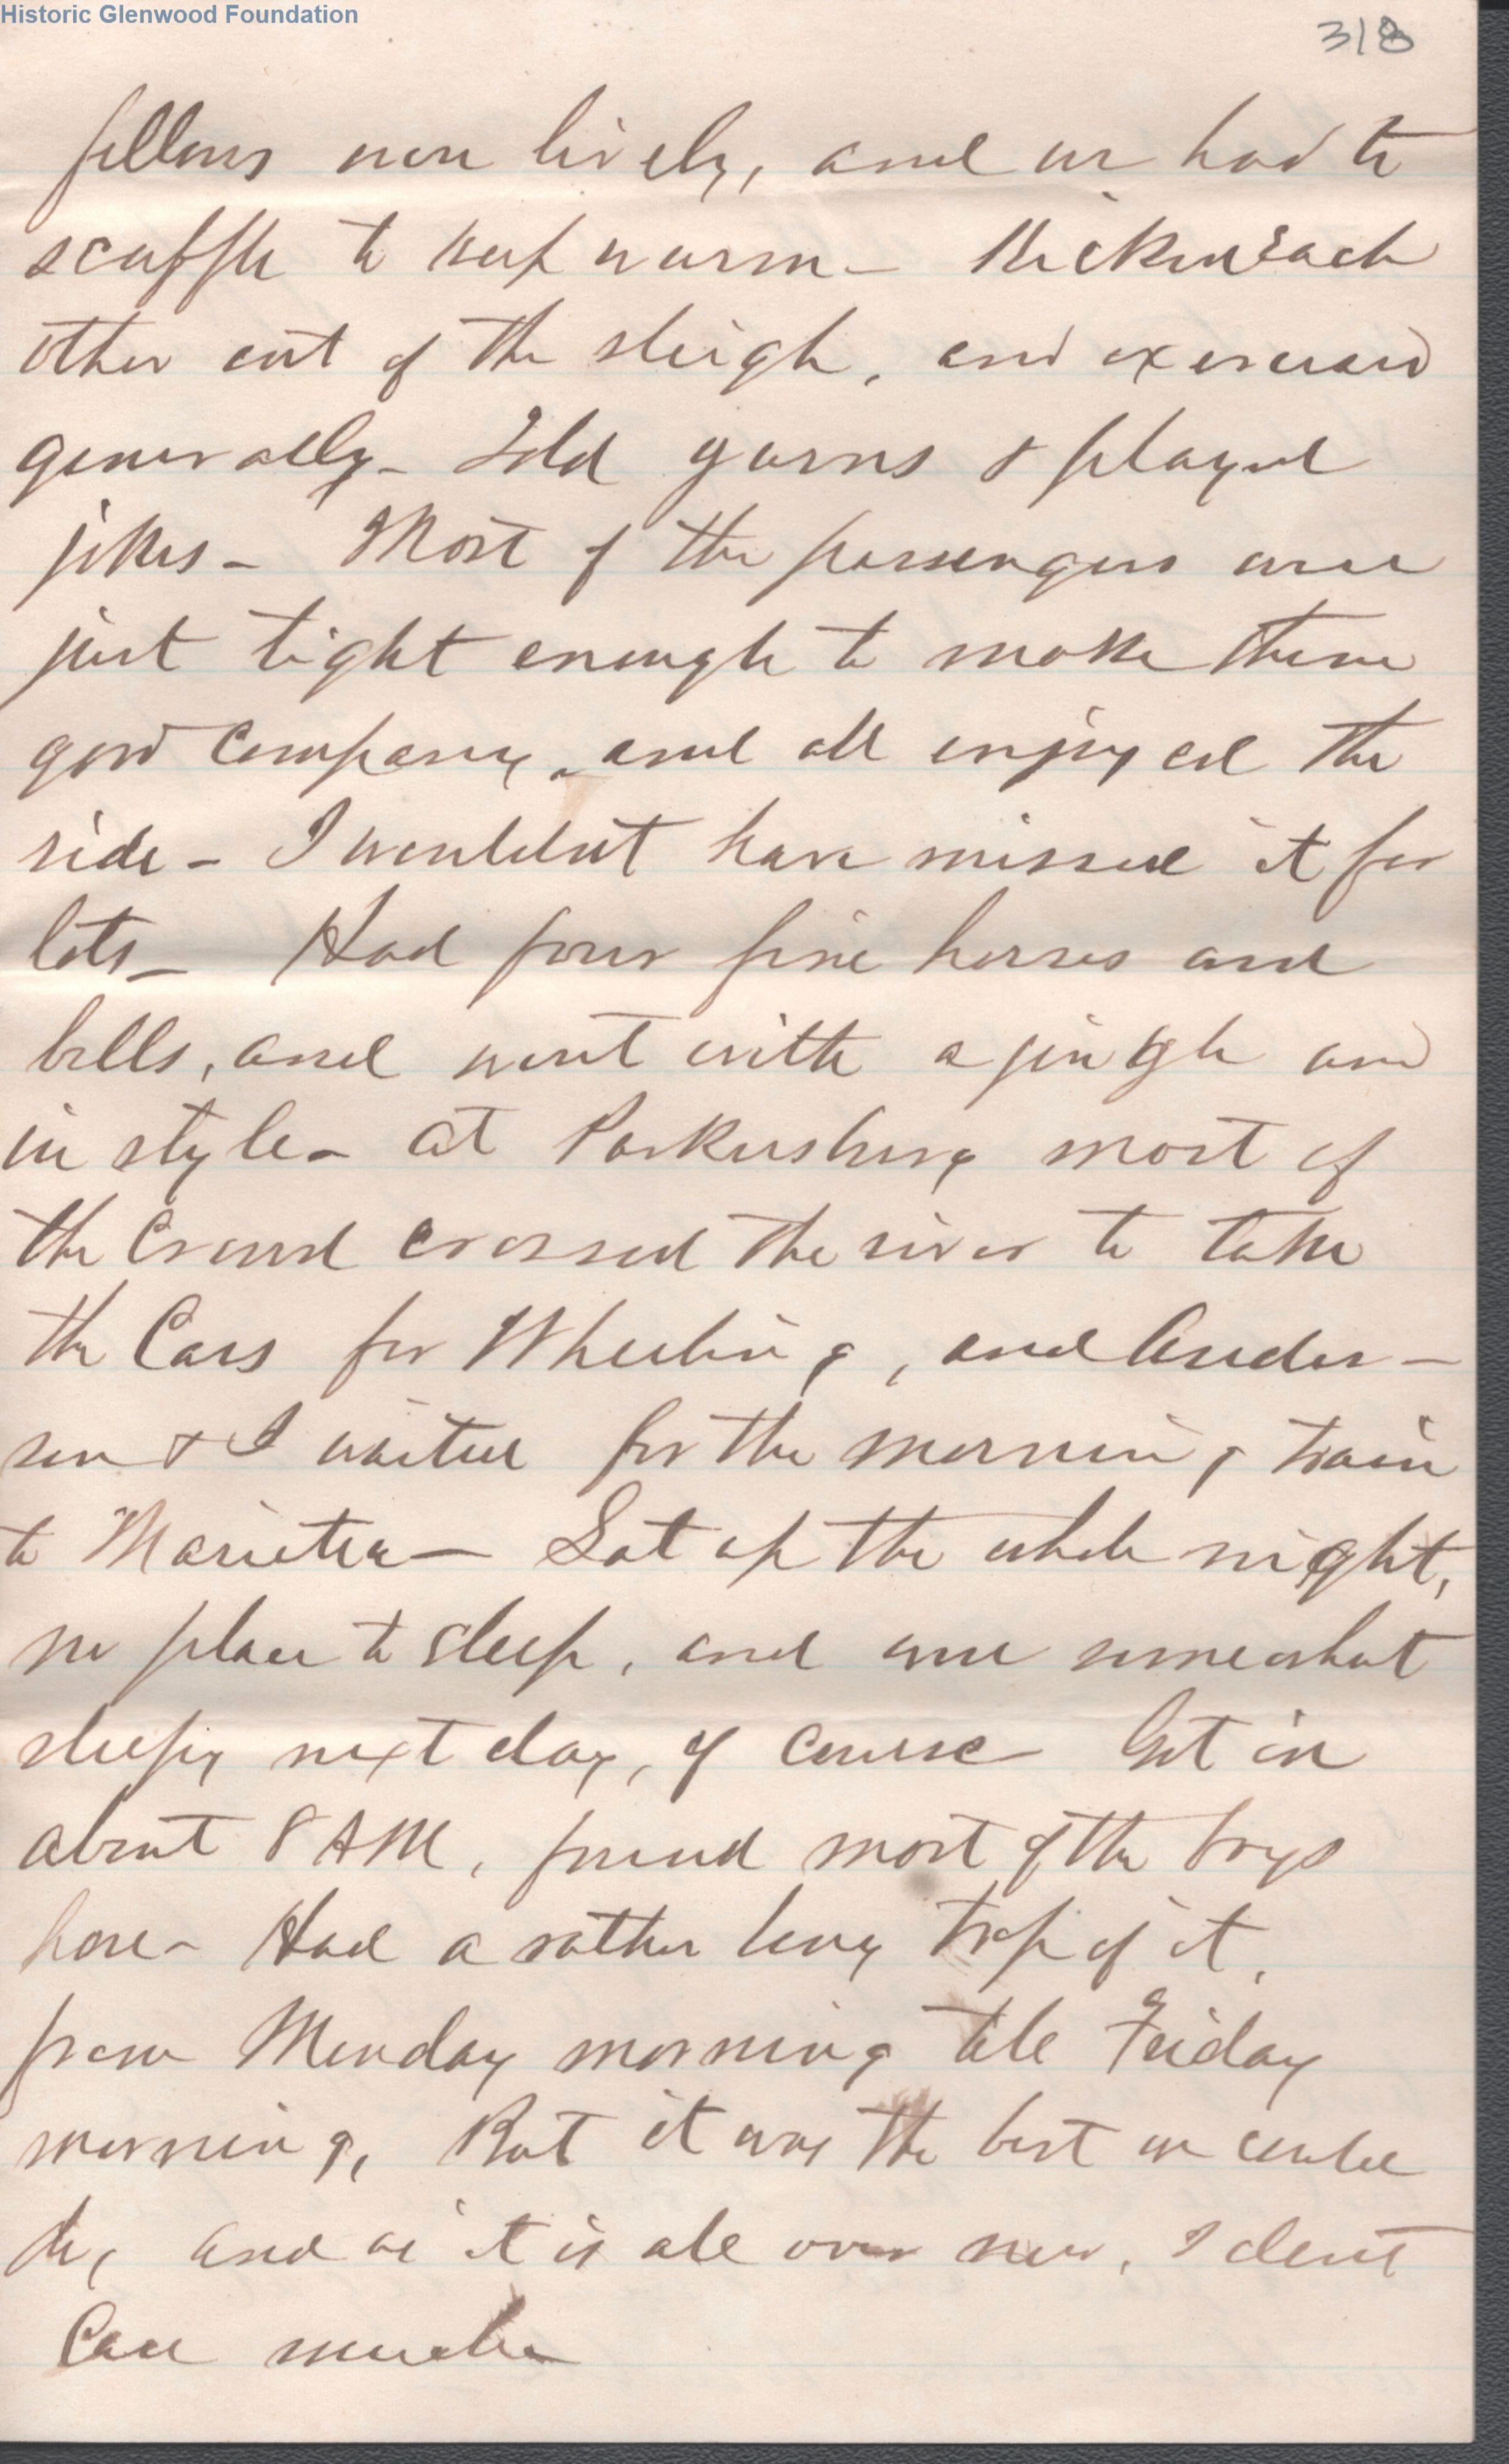 Historic Glenwood Foundation
318
fellows were lively, and we had to
scuffle to keep warm - Kicked each
other out of the sleigh, and exercised
generally - Told yarns & played
jokes - Most of the passengers were
just tight enough to make them
good company, and all enjoyed the
ride - I wouldn't have missed it for
lots - Had four fine horses and
bells, and went with a jingle and
in style - At Parkersburg most of
the crowd crossed the river to take
the Cars for Wheeling, and Ander-
son & I waited for the morning train
to Marietta - Sat up the whole night,
no place to sleep, and were somewhat
sleepy next day, of course Got in
about 8 AM, found most of the boys
here - Had a rather long trip of it,
from Monday morning till Friday
morning, But it was the best we could
do, and as it is all over now, I dont
Care much